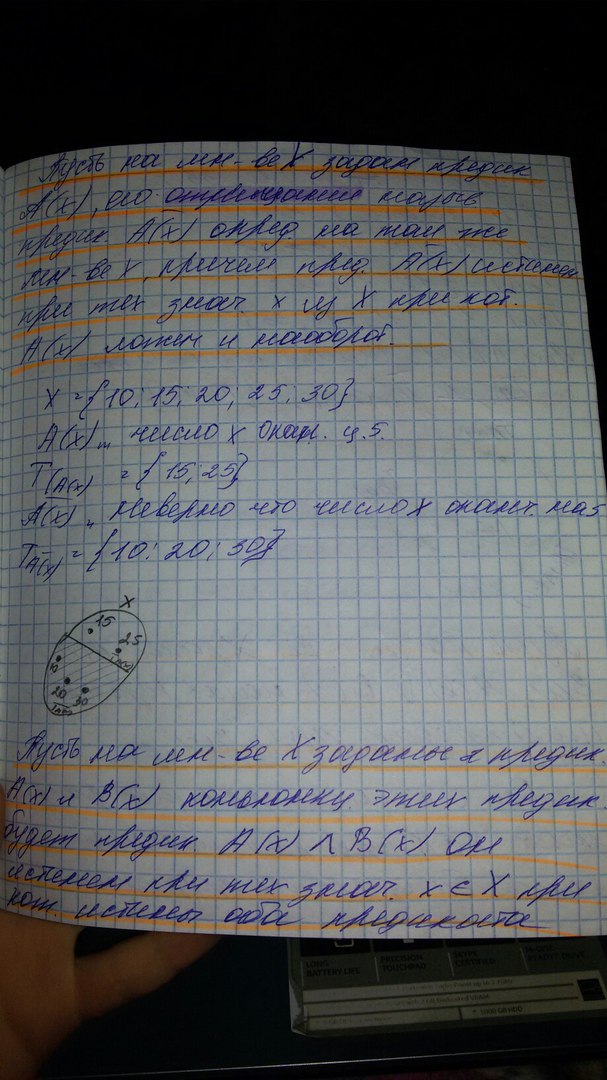 Пусть на мн-ве X задан предик
A(x), его отрицание назыв
предик. A̅(x) опред. на том же
мн-ве X, причем пред. A̅(x) истинен
при тех знач. x из X при кот.
A(x) ложен и наоборот.
X = {10; 15; 20; 25; 30}
A(x) „ число x оканч. ц. 5.
T(A(x)) = {15; 25}
A̅(x) „ Неверно что число x оканч. на 5
T A̅(x) = {10; 20; 30}
X
15
25
T A(x)
10
20
30
T A̅(x)
Пусть на мн-ве X заданы 2 предик.
A(x) и B(x) конъюнкц этих предик
будет предик. A(x) ∧ B(x). он
истинен при тех знач. x ∈ X при
кот. истины оба предиката
LONG BATTERY LIFE
PRECISION TOUCHPAD
SKYPE CERTIFIED
1000 GB HDD